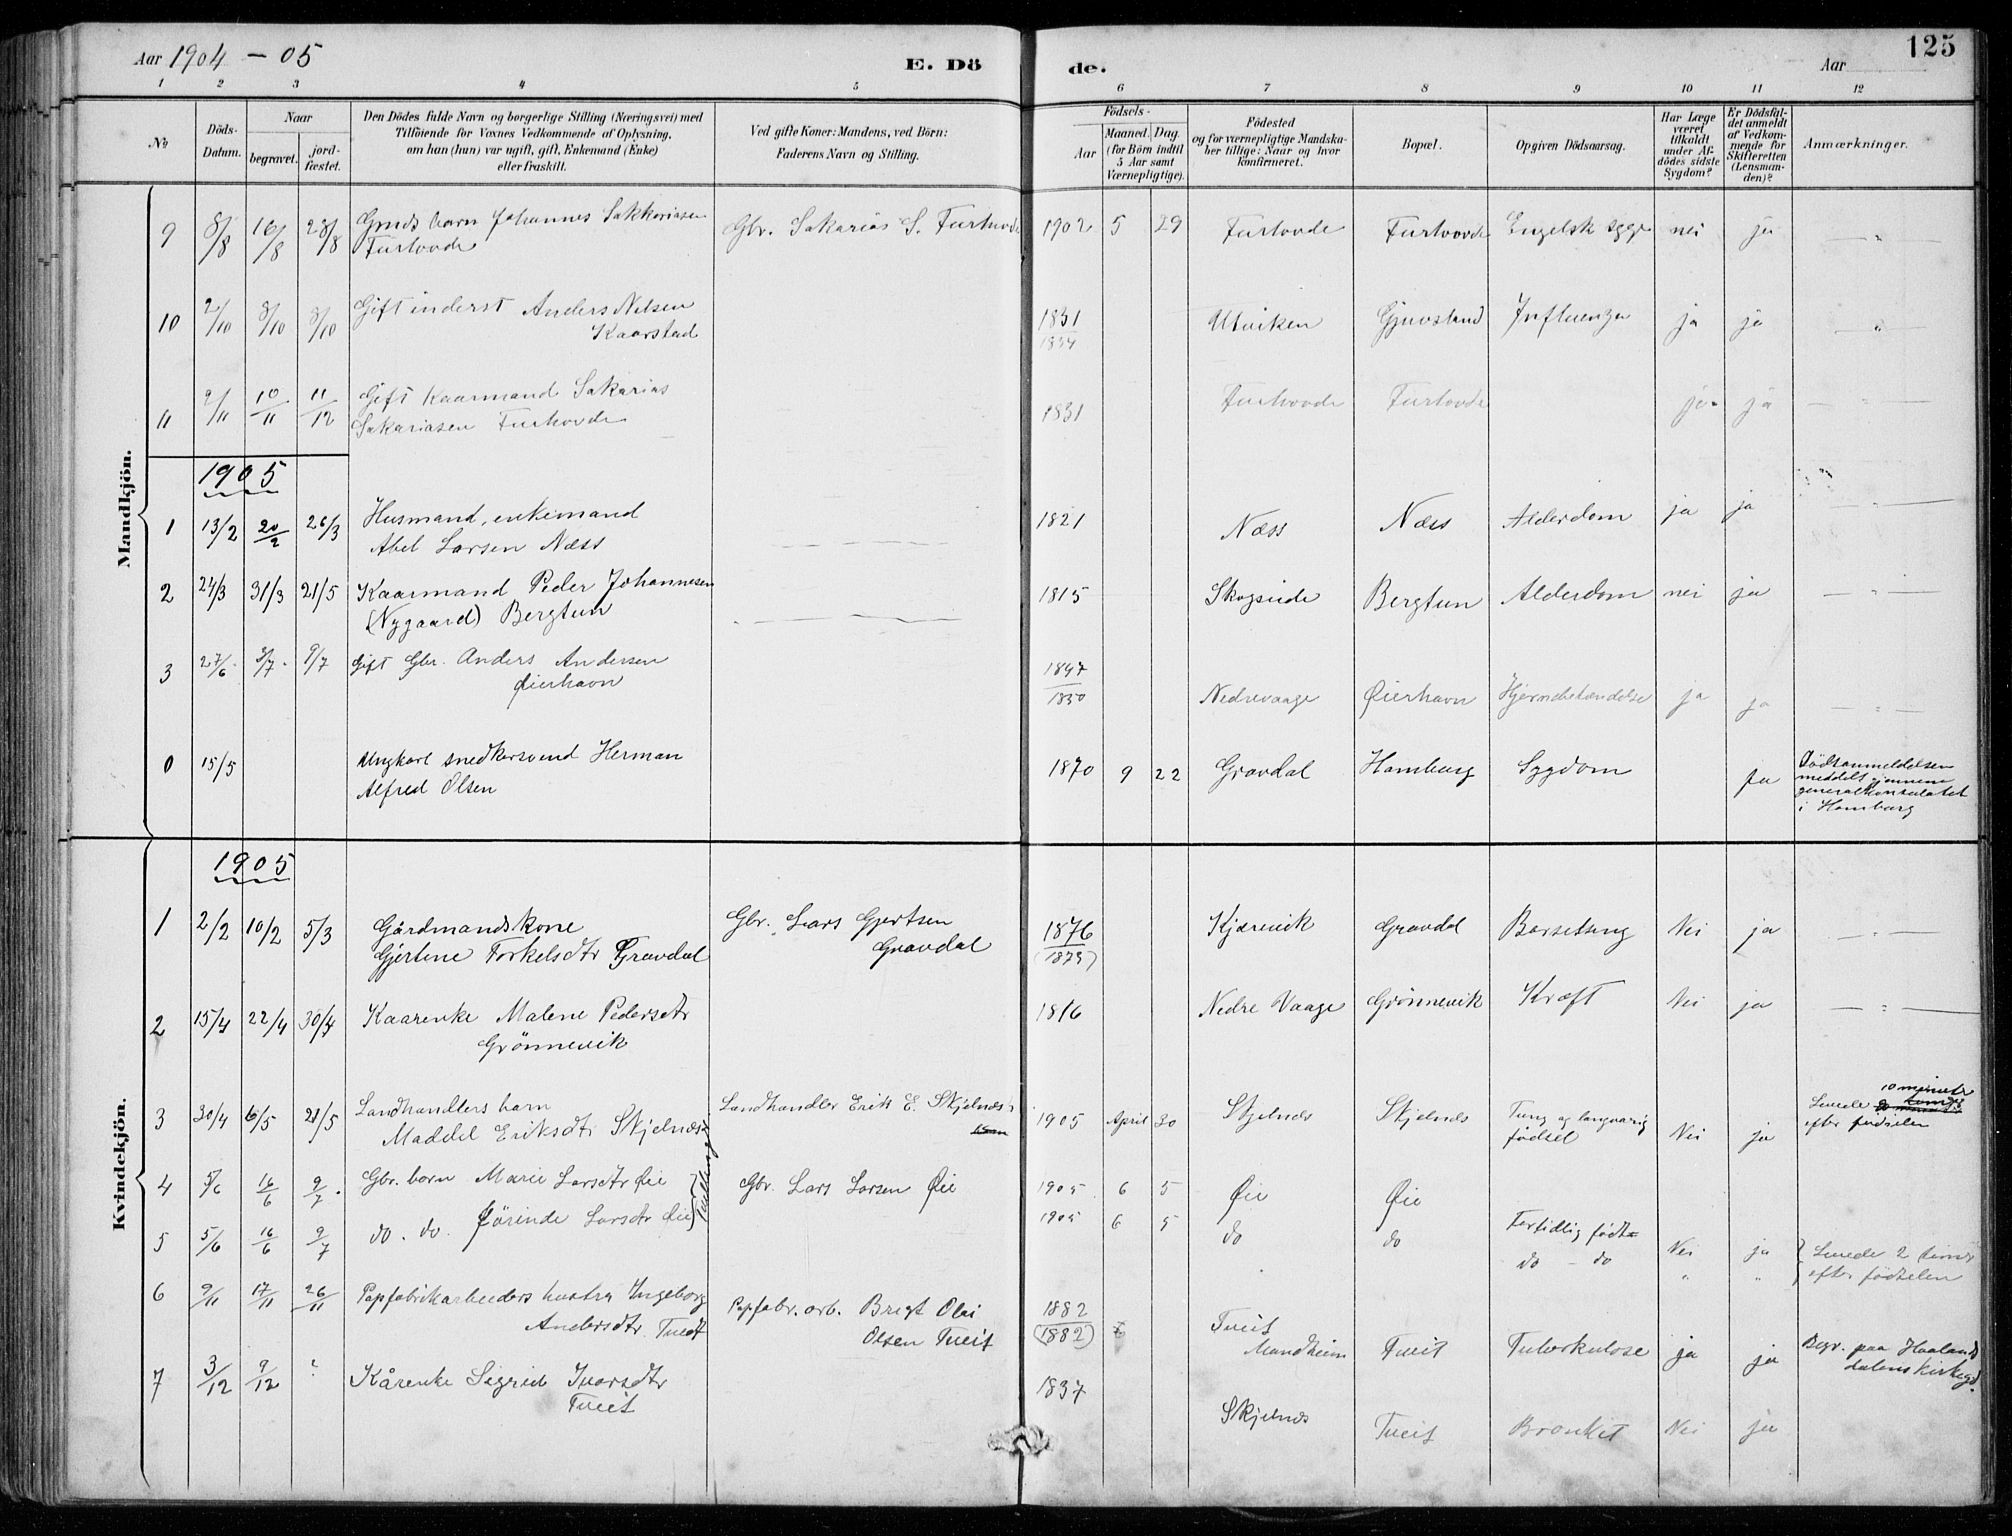 Aar 1904 - 05
E. Dö
de.
Aar
125
1 2 3 4 5 6 7 8 9 10 11 12
No
Döds-
Datum.
Naar
begravet.
jord-
fæstet.
Den Dödes fulde Navn og borgerlige Stilling (Næringsvei) med
Tilföiende for Voxnes Vedkommende af Oplysning,
om han (hun) var ugift, gift, Enkemand (Enke)
eller fraskilt.
Ved gifte Koner: Mandens, ved Börn:
Faderens Navn og Stilling.
Födsels-
Aar
Maaned. Dag.
(for Börn indtil
5 Aar samt
Værnepligtige).
Födested
og for værnepligtige Mandska-
ber tillige: Naar og hvor
konfirmeret.
Bopæl.
Opgiven Dödsaarsag.
Har Læge
været
tilkaldt
under Af-
dödes sidste
Sygdom?
Er Dödsfal-
det anmeldt
af Vedkom-
mende for
Skifteretten
(Lensman-
den)?
Anmærkninger.
Mandkjön.
9 8/8 16/8 28/8 Gmds barn Johannes Sakkariasen Gbr. Sakarias S. Furhovde 1902 5 29 Furhovde Furhovde Engelsk syge nei ja — " —
Furhovde
10 2/10 8/10 8/10 Gift inderst Anders Nilsen 1831 Utviken Gjuvsland Influenza ja ja — " —
Kaarstad 1834
11 2/11 10/11 11/12 Gift Kaarmand Sakarias 1831 Furhovde Furhovde ja ja — " —
Sakariasen Furhovde
1905
1 13/2 20/2 26/3 Husmand, enkemand 1821 Næss Næss Alderdom ja ja — " —
Abel Larsen Næss
2 24/3 31/3 21/5 Kaarmand Peder Johannesen 1815 Skogseide Bergtun Alderdom nei ja — " —
(Nygaard) Bergtun
3 27/6 3/7 9/7 Gift Gbr. Anders Andersen 1847 Nedrevaage Øierhavn Hjernebetændelse ja ja — " —
Øierhavn 1850
0 15/5 Ungkarl snedkersvend Herman 1870 9 22 Gravdal Hamburg Sygdom ja Dödsanmeldelsen
Alfred Olsen meddelt gjennem
generalkonsulatet
i Hamburg
Kvindekjön.
1905
1 2/2 10/2 5/3 Gårdmandskone Gbr. Lars Gjertsen 1876 Kjærevik Gravdal Barselseng Nei ja — " —
Gjertine Torkelsdtr Gravdal Gravdal (1875)
2 15/4 22/4 30/4 Kaarenke Malene Pedersdtr 1816 Nedre Vaage Grönnevik Kræft Nei ja — " —
Grönnevik
3 30/4 6/5 21/5 Landhandlers barn Landhandler Erik E. Skjelnes 1905 April 30 Skjelnes Skjelnes Tung og langvarig födsel Nei ja Levede 10 minuter
Maddel Eriksdtr Skjelnes efter födselen
4 5/6 16/6 9/7 Gbr. barn Marie Larsdtr Øie Gbr. Lars Larsen Øie 1905 6 5 Øie Øie Fortidlig födt Nei ja Levede 2 timer
5 5/6 16/6 9/7 do. do. Larsdtr Øie 1905 6 5 do do do - do " " efter födselen
6 9/11 17/11 26/11 Papfabrikarbeiders hustru Ingeborg Papfabr. arb. Brigt Olai 1882 Tveit Tveit Tuberkulose ja ja Begr. paa Haalands
Andersdtr Tveit Olsen Tveit (1882) Mundheim dalens Kirkegd.
7 3/12 9/12 ? Kårenke Sigrid Ivarsdtr 1837 Skjelnes Tveit Bronkit Nei ja
Tveit